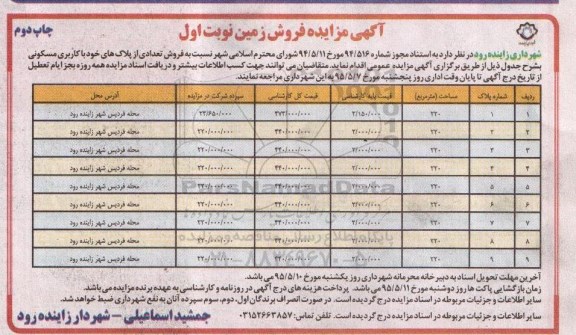 آگهی مزایده فروش زمین نوبت اول
چاپ دوم
شهرداری زاینده رود در نظر دارد به استناد مجوز شماره ۹۴/۵۱۶ مورخ ۹۴/۵/۱۱ شورای محترم اسلامی شهر نسبت به فروش تعدادی از پلاک های خود با کاربری مسکونی
بشرح جدول ذیل از طریق برگزاری آگهی مزایده عمومی اقدام نماید. متقاضیان می توانند جهت کسب اطلاعات بیشتر و دریافت اسناد مزایده همه روزه بجز ایام تعطیل
از تاریخ درج آگهی تا پایان وقت اداری روز پنجشنبه مورخ ۹۵/۵/۷ به این شهرداری مراجعه نمایند.
ردیف شماره پلاک مساحت (مترمربع) قیمت پایه کارشناسی قیمت کل کارشناسی سپرده شرکت در مزایده آدرس محل
۱ ۱ ۲۲۰ ۲/۱۵۰/۰۰۰ ۴۷۳/۰۰۰/۰۰۰ ۲۳/۶۵۰/۰۰۰ محله فردیس شهر زاینده رود
۲ ۲ ۲۲۰ ۲/۰۰۰/۰۰۰ ۴۴۰/۰۰۰/۰۰۰ ۲۲۰/۰۰۰/۰۰۰ محله فردیس شهر زاینده رود
۳ ۳ ۲۲۰ ۲/۰۰۰/۰۰۰ ۴۴۰/۰۰۰/۰۰۰ ۲۲۰/۰۰۰/۰۰۰ محله فردیس شهر زاینده رود
۴ ۴ ۲۲۰ ۲/۰۰۰/۰۰۰ ۴۴۰/۰۰۰/۰۰۰ ۲۲۰/۰۰۰/۰۰۰ محله فردیس شهر زاینده رود
۵ ۵ ۲۲۰ ۲/۰۰۰/۰۰۰ ۴۴۰/۰۰۰/۰۰۰ ۲۲۰/۰۰۰/۰۰۰ محله فردیس شهر زاینده رود
۶ ۶ ۲۲۰ ۲/۰۰۰/۰۰۰ ۴۴۰/۰۰۰/۰۰۰ ۲۲۰/۰۰۰/۰۰۰ محله فردیس شهر زاینده رود
۷ ۷ ۲۲۰ ۲/۰۰۰/۰۰۰ ۴۴۰/۰۰۰/۰۰۰ ۲۲۰/۰۰۰/۰۰۰ محله فردیس شهر زاینده رود
۸ ۸ ۲۲۰ ۲/۰۰۰/۰۰۰ ۴۴۰/۰۰۰/۰۰۰ ۲۲۰/۰۰۰/۰۰۰ محله فردیس شهر زاینده رود
۹ ۹ ۲۲۰ ۲/۰۰۰/۰۰۰ ۴۴۰/۰۰۰/۰۰۰ ۲۲۰/۰۰۰/۰۰۰ محله فردیس شهر زاینده رود
ParsNamadData
آخرین مهلت تحویل اسناد به دبیرخانه محرمانه شهرداری روز یکشنبه مورخ ۹۵/۵/۱۰ می باشد.
زمان بازگشایی پاکت ها روز دوشنبه مورخ ۹۵/۵/۱۱ می باشد. پرداخت هزینه های درج آگهی در روزنامه و کارشناسی به عهده برنده مزایده می باشد.
سایر اطلاعات و جزئیات مربوطه در اسناد مزایده درج گردیده است. در صورت انصراف برندگان اول، دوم، سوم سپرده آنان به نفع شهرداری ضبط خواهد شد.
سایر اطلاعات و جزئیات مربوطه در اسناد مزایده درج گردیده است. تلفن تماس: ۰۳۱۵۲۶۶۳۸۵۷
جمشید اسماعیلی - شهردار زاینده رود